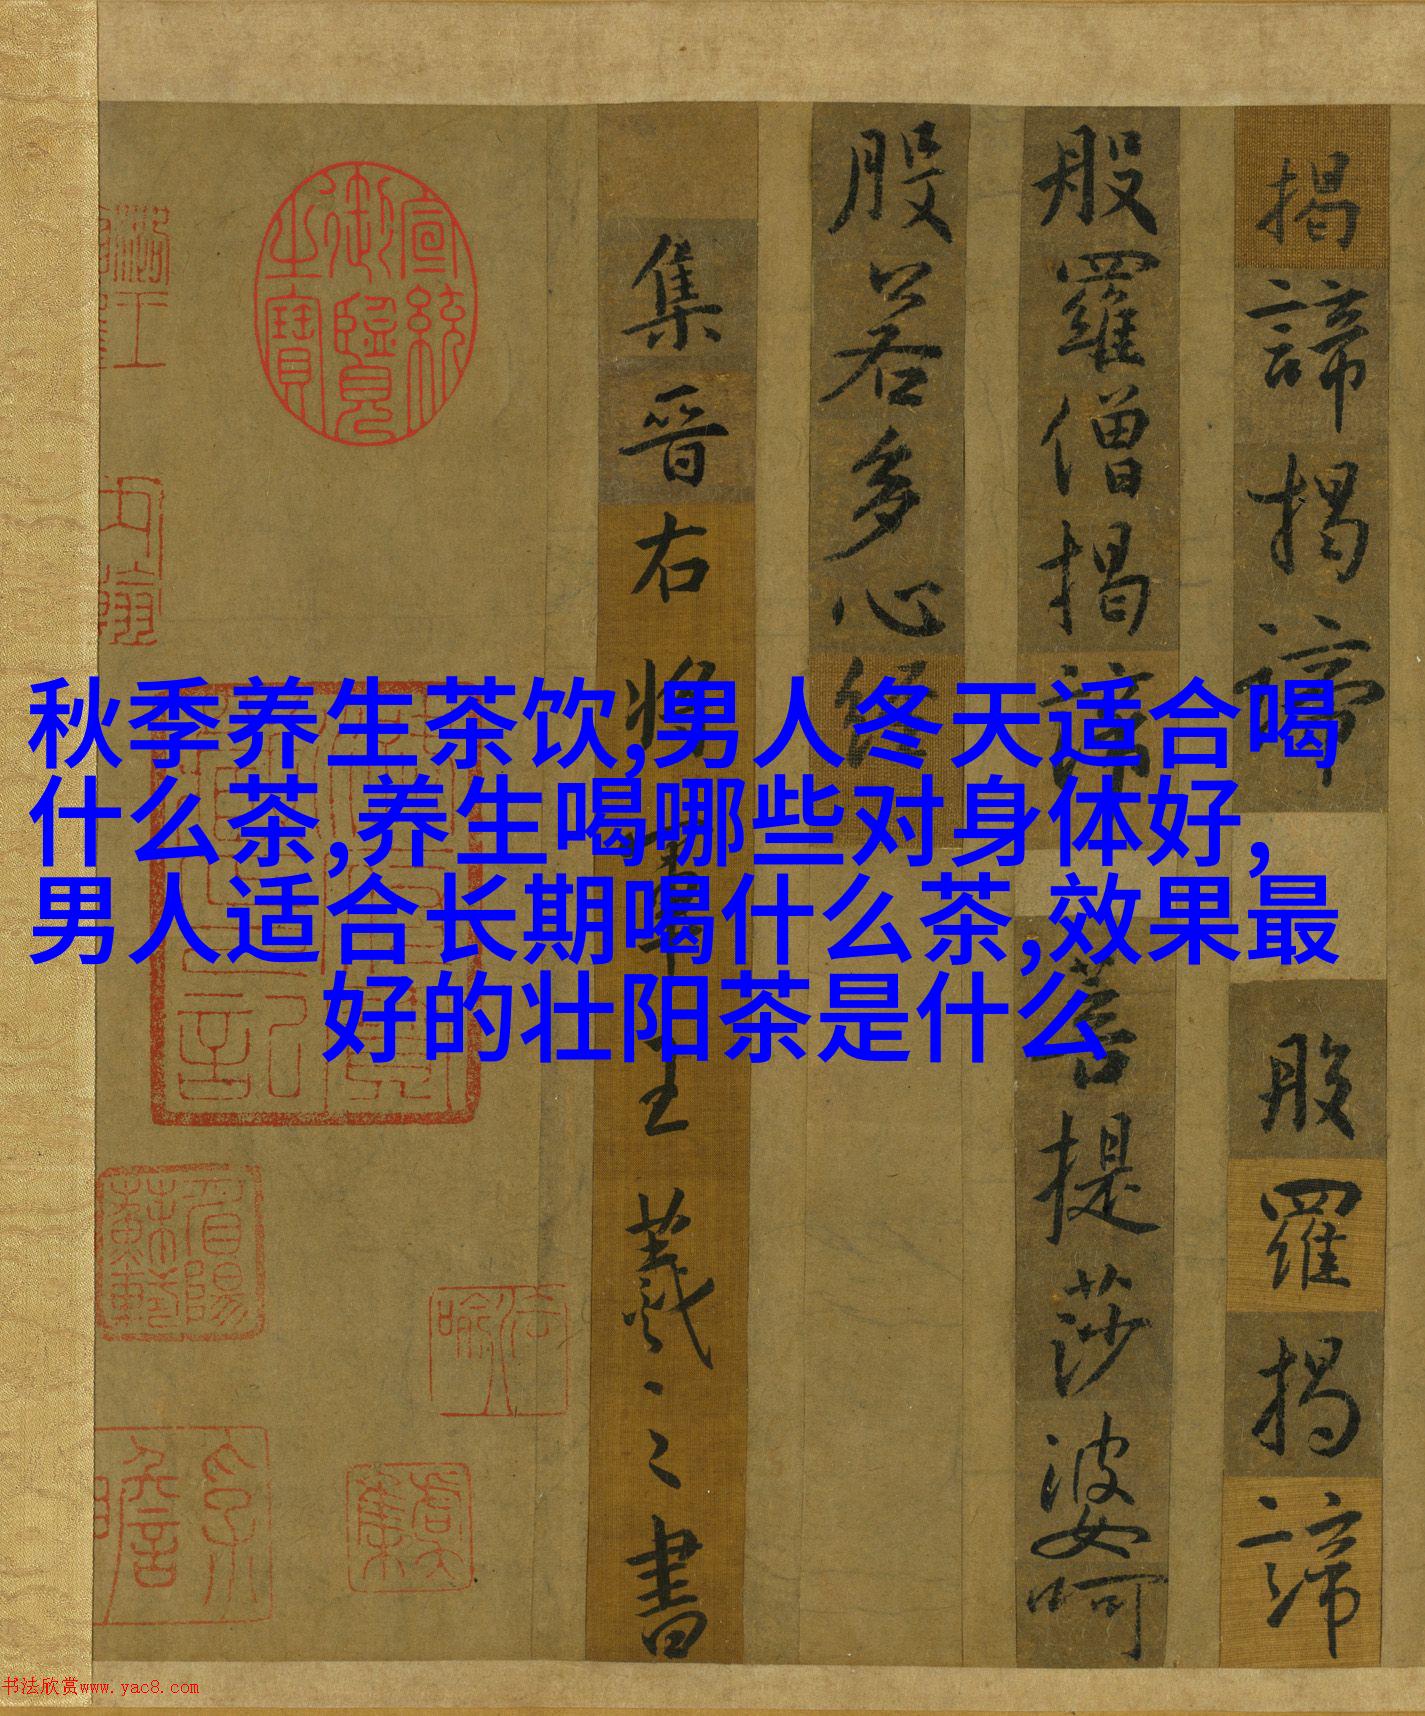 秋季养生茶饮,男人冬天适合喝
什么茶,养生喝哪些对身体好,
男人适合长期喝什么茶,效果最
好的壮阳茶是什么
揭諦揭諦般羅揭諦
般羅僧揭諦菩提莎婆呵
般若多心經
集晉右將軍王羲之書
宣統御覽之寶
书法欣赏www.yac8.com